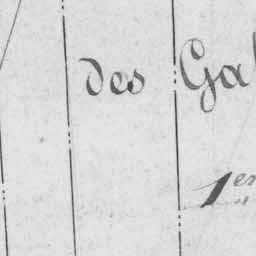 des Gal
1er